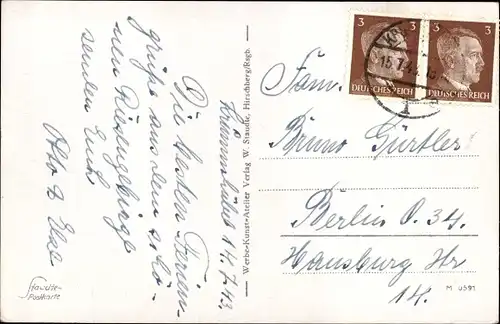 Krummhübel 14.7.43.
Die besten Ferien-
grüße aus dem schö-
nen Riesengebirge
senden Euch
Otto & Else
Staudte-
Postkarte
Werbe-Kunst-Atelier Verlag W. Staudte, Hirschberg/Rsgb.
3 3
DEUTSCHES REICH
3
DEUTSCHES REICH
15.7.43
Fam.
Bruno Gürtler
Berlin O. 34.
Hausburg Str
14.
M 0591